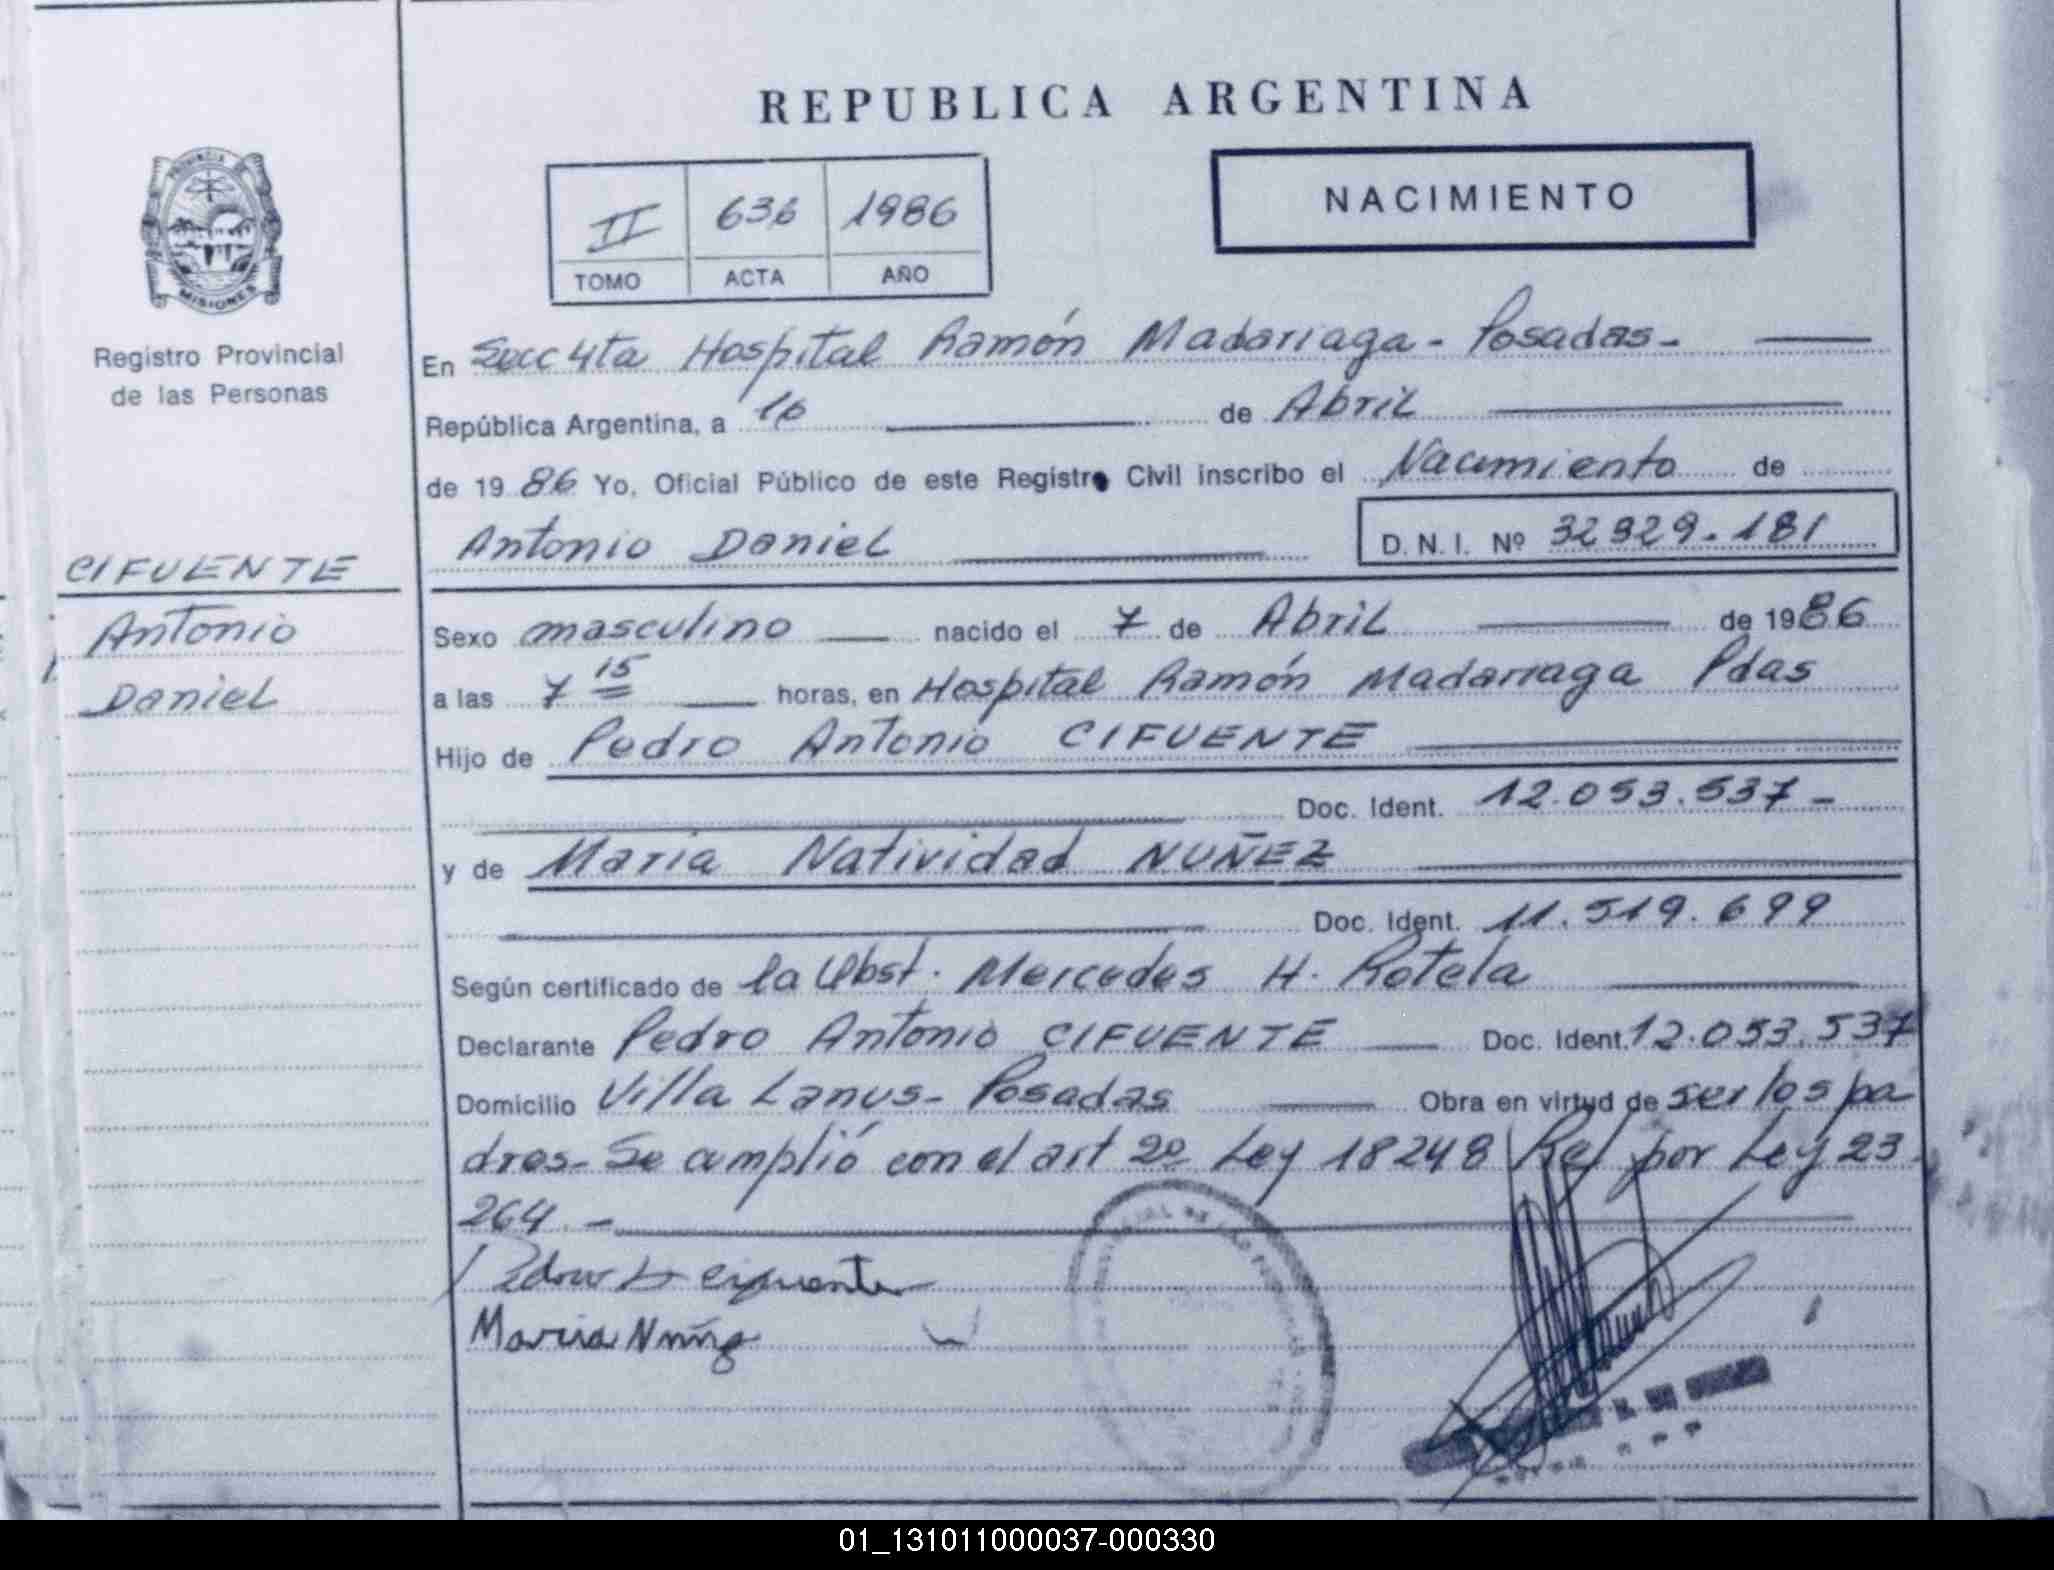 REPUBLICA ARGENTINA
PROVINCIA
MISIONES
Registro Provincial
de las Personas
II 636 1986
TOMO ACTA AÑO
NACIMIENTO
En Secc 4ta Hospital Ramón Madariaga - Posadas -
República Argentina, a 16 de Abril
de 19 86 Yo, Oficial Público de este Registro Civil inscribo el Nacimiento de
Antonio Daniel D. N. I. Nº 32329.181
CIFUENTE
Antonio
Daniel
Sexo masculino nacido el 7 de Abril de 1986
a las 7 15 horas, en Hospital Ramón Madariaga Pdas
Hijo de Pedro Antonio CIFUENTE
Doc. Ident. 12.053.537 -
y de Maria Natividad NUÑEZ
Doc. Ident. 11.519.699
Según certificado de la Obst. Mercedes H. Rotela
Declarante Pedro Antonio CIFUENTE Doc. Ident. 12.053.537
Domicilio Villa Lanus - Posadas Obra en virtud de ser los pa
dres - Se amplió con el art 2º Ley 18248 Ref por Ley 23.
264. -
Pedro A cifuente
Maria Nuñez
01_131011000037-000330